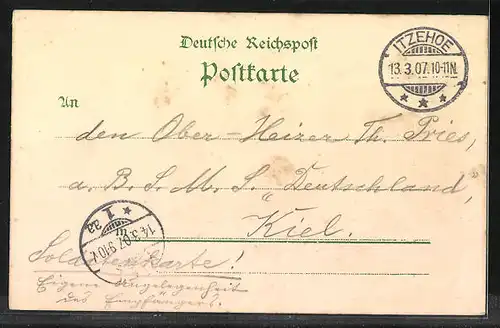 Deutsche Reichspost
Postkarte
ITZEHOE
13.3.07.10-11N.
* * *
An
den Ober-Heizer Th. Pries,
a. B. S. M. S. „Deutschland,
Kiel.
14.3.07. 9-10V
* I aa
Soldatenkarte!
Eigene Angelegenheit
des Empfängers.